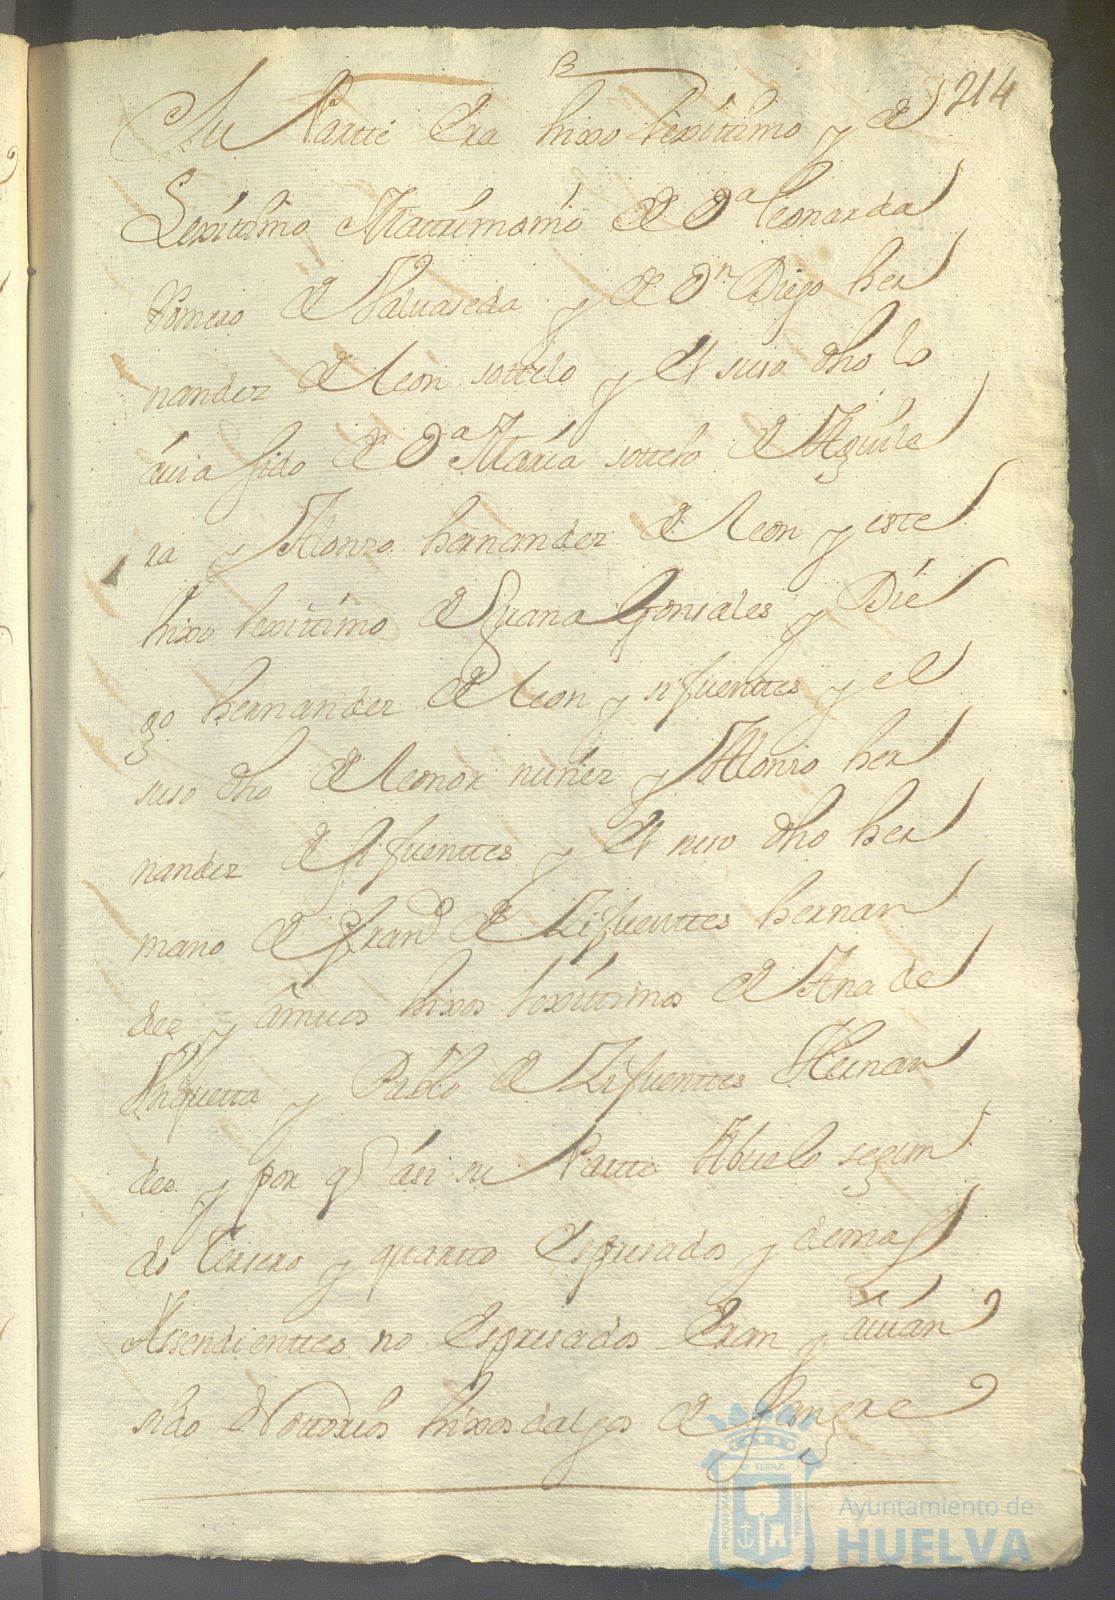 214
Su Partte Era hixo lexittimo y de
Lexittimo Mattrimonio de Dª leonarda
Romero de Valuaseda y de Dn Diego her
nandez de leon sottelo y el suso dho lo
áuia sido de Dª María sottelo de Aguile
ra y Alonzo hernandez de leon y este
hixo lexittimo de Juana Gonsales y Die
go hernandez de leon y sifuenttes y el
suso dho de leonor nuñez y Alonso her
nandez de sifuenttes y el suso dho her
mano de Frandº de Zifuenttes hernan
dez y ámuos hixos lexittimos de Ana de
y Pablo de Zifuenttes Hernan
dez y por q ási su Partte Abuelo segun
do tersero y quartto Espresados y demas
Assendienttes no Espresados Eran y áuián
sido Nottorios hixosdalgos de sangre
Ayuntamiento de
HUELVA